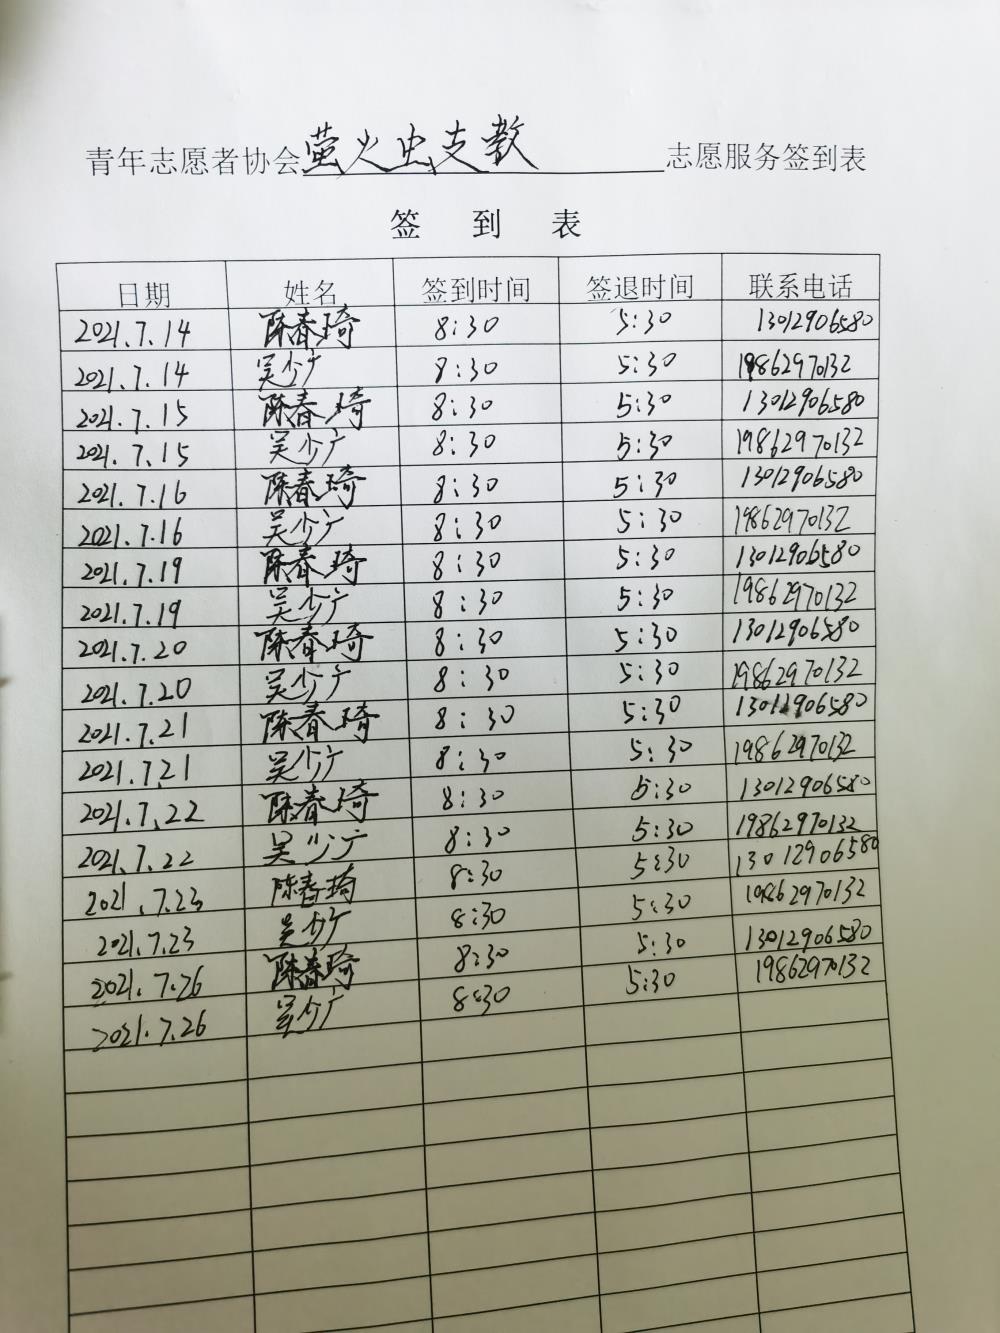 青年志愿者协会萤火虫支教志愿服务签到表
签 到 表
日期 姓名 签到时间 签退时间 联系电话
2021.7.14 陈春琦 8:30 5:30 13012906580
2021.7.14 吴少广 8:30 5:30 19862970132
2021.7.15 陈春琦 8:30 5:30 13012906580
2021.7.15 吴少广 8:30 5:30 19862970132
2021.7.16 陈春琦 8:30 5:30 13012906580
2021.7.16 吴少广 8:30 5:30 19862970132
2021.7.19 陈春琦 8:30 5:30 13012906580
2021.7.19 吴少广 8:30 5:30 19862970132
2021.7.20 陈春琦 8:30 5:30 13012906580
2021.7.20 吴少广 8:30 5:30 19862970132
2021.7.21 陈春琦 8:30 5:30 13012906580
2021.7.21 吴少广 8:30 5:30 19862970132
2021.7.22 陈春琦 8:30 5:30 13012906580
2021.7.22 吴少广 8:30 5:30 19862970132
2021.7.23 陈春琦 8:30 5:30 13012906580
2021.7.23 吴少广 8:30 5:30 19862970132
2021.7.26 陈春琦 8:30 5:30 13012906580
2021.7.26 吴少广 8:30 5:30 19862970132